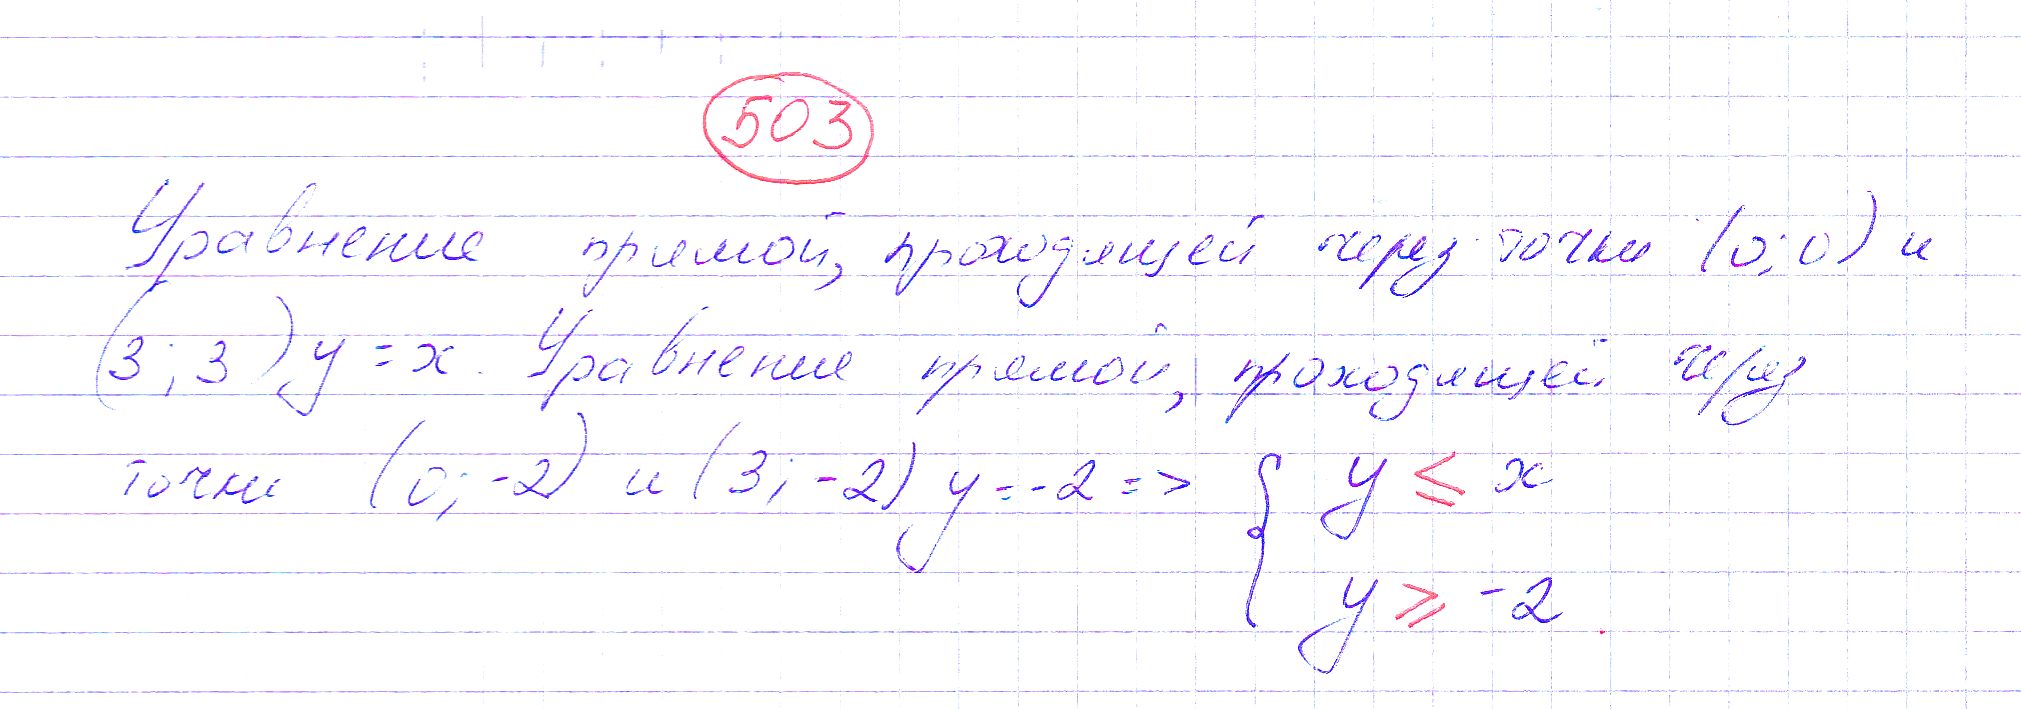 503
Уравнение прямой, проходящей через точки (0; 0) и
(3; 3) y = x. Уравнение прямой, проходящей через
точки (0; -2) и (3; -2) y = -2 => { y ⩽ x
y ⩾ -2